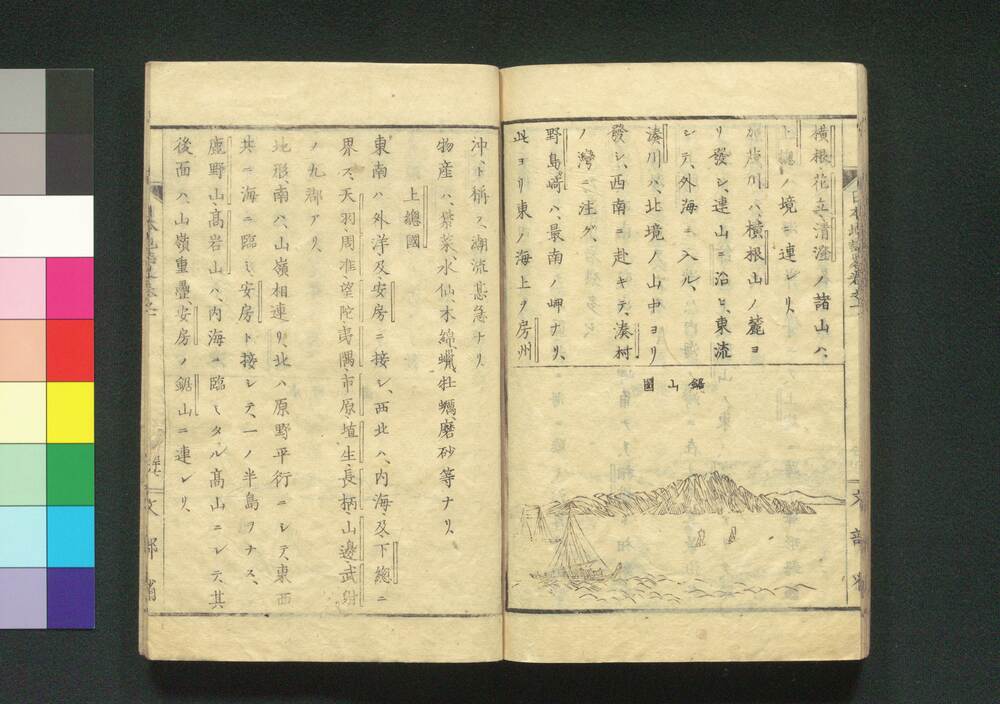 横根花立、清澄ノ諸山ハ、
上總ノ境ニ連レリ、
加茂川ハ、橫根山ノ麓ヨ
リ發シ、連山ニ沿ヒ、東流
シテ、外海ニ入ル、
湊川ハ、北境ノ山中ヨリ
發シ、西南ニ赴キテ、湊村
ノ灣ニ注グ、
野島崎ハ、最南ノ岬ナリ、
此ヨリ東ノ海上ヲ房州
鋸山圖
文部省
沖ト稱ス、潮流甚急ナリ、
物産ハ、紫菜、水仙、木綿、蠟、牡蠣、磨砂等ナリ、
上總國
東南ハ外洋及安房ニ接シ、西北ハ、内海及下總ニ
界ス、天羽、周准、望陀、夷隅、市原、埴生、長柄、山邊、武射
ノ九郡アリ、
地形南ハ、山嶺相連リ、北ハ原野平行ニシテ、東西
共ニ海ニ臨ミ、安房ト接シテ、一ノ半島ヲナス、
鹿野山、高岩山ハ、内海ニ臨ミタル高山ニシテ、其
後面ハ、山嶺重疊、安房ノ鋸山ニ連レリ、
文部省